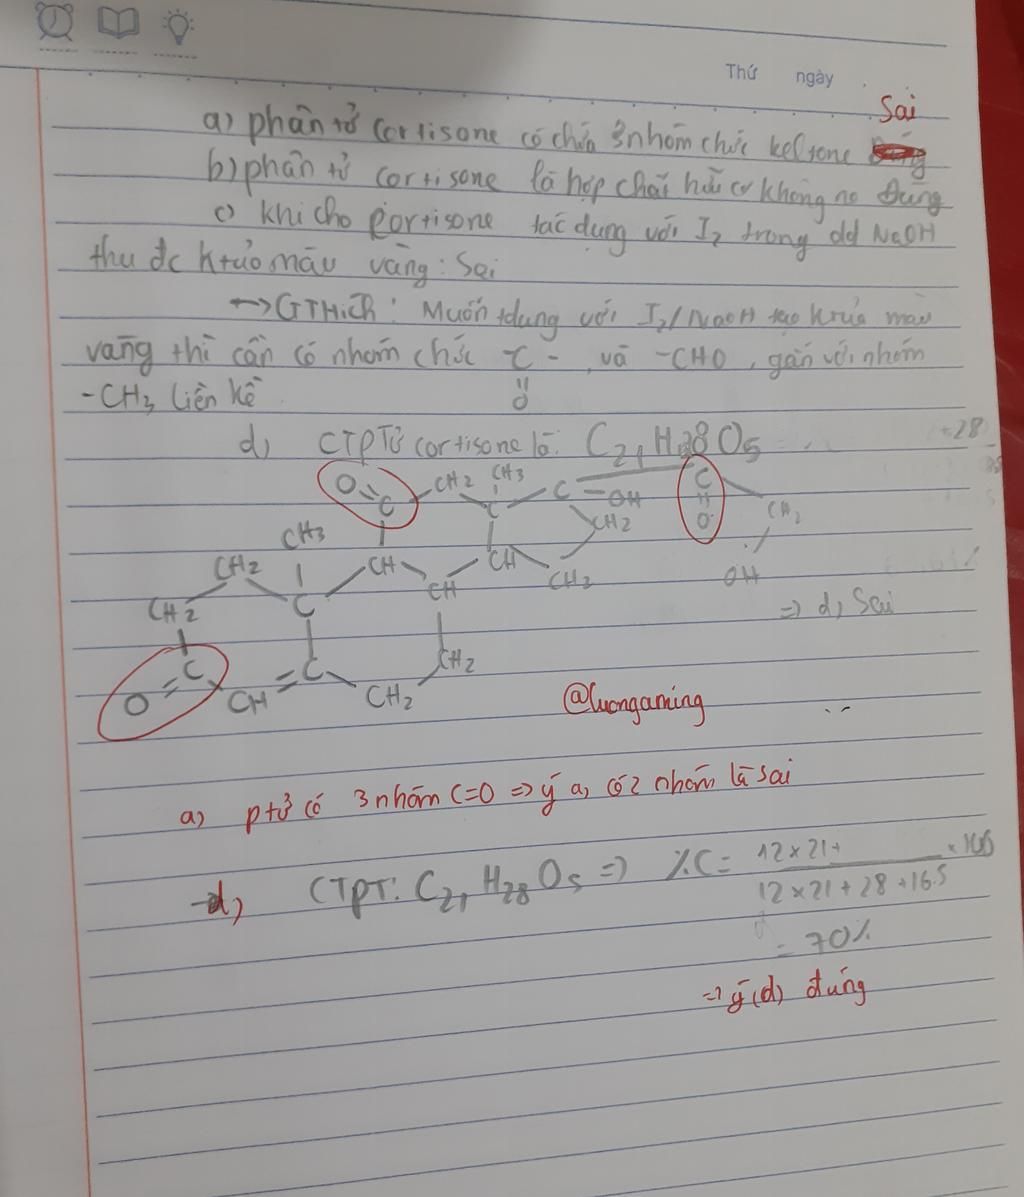 Thứ ngày
Sai
a) phân tử cortisone có chứa 3 nhóm chức keltone
b) phân tử cortisone là hợp chất hữu cơ không no Đúng
c) khi cho cortisone tác dụng với I2 trong dd NaOH
thu đc ktủa màu vàng: Sai
→ GTHích: Muốn tdụng với I2/NaOH tạo ktủa màu
vàng thì cần có nhóm chức -C- , và -CHO, gắn với nhóm
-CH3 liền kề O
d) CTPTử cortisone là: C21H28O5
O=C CH2 CH3 C C -OH C=O CH2
CH3 CH2
CH2 C CH CH CH CH2 OH
CH2
=> d, Sai
O=C CH=C CH2 CH2
@luongaming
a, ptử có 3 nhóm C=O => ý a, có 2 nhóm là sai
d, CTPT: C21H28O5 => %C = 12x21+ x100
12x21+28+16.5
= 70%
=> ý (d) đúng